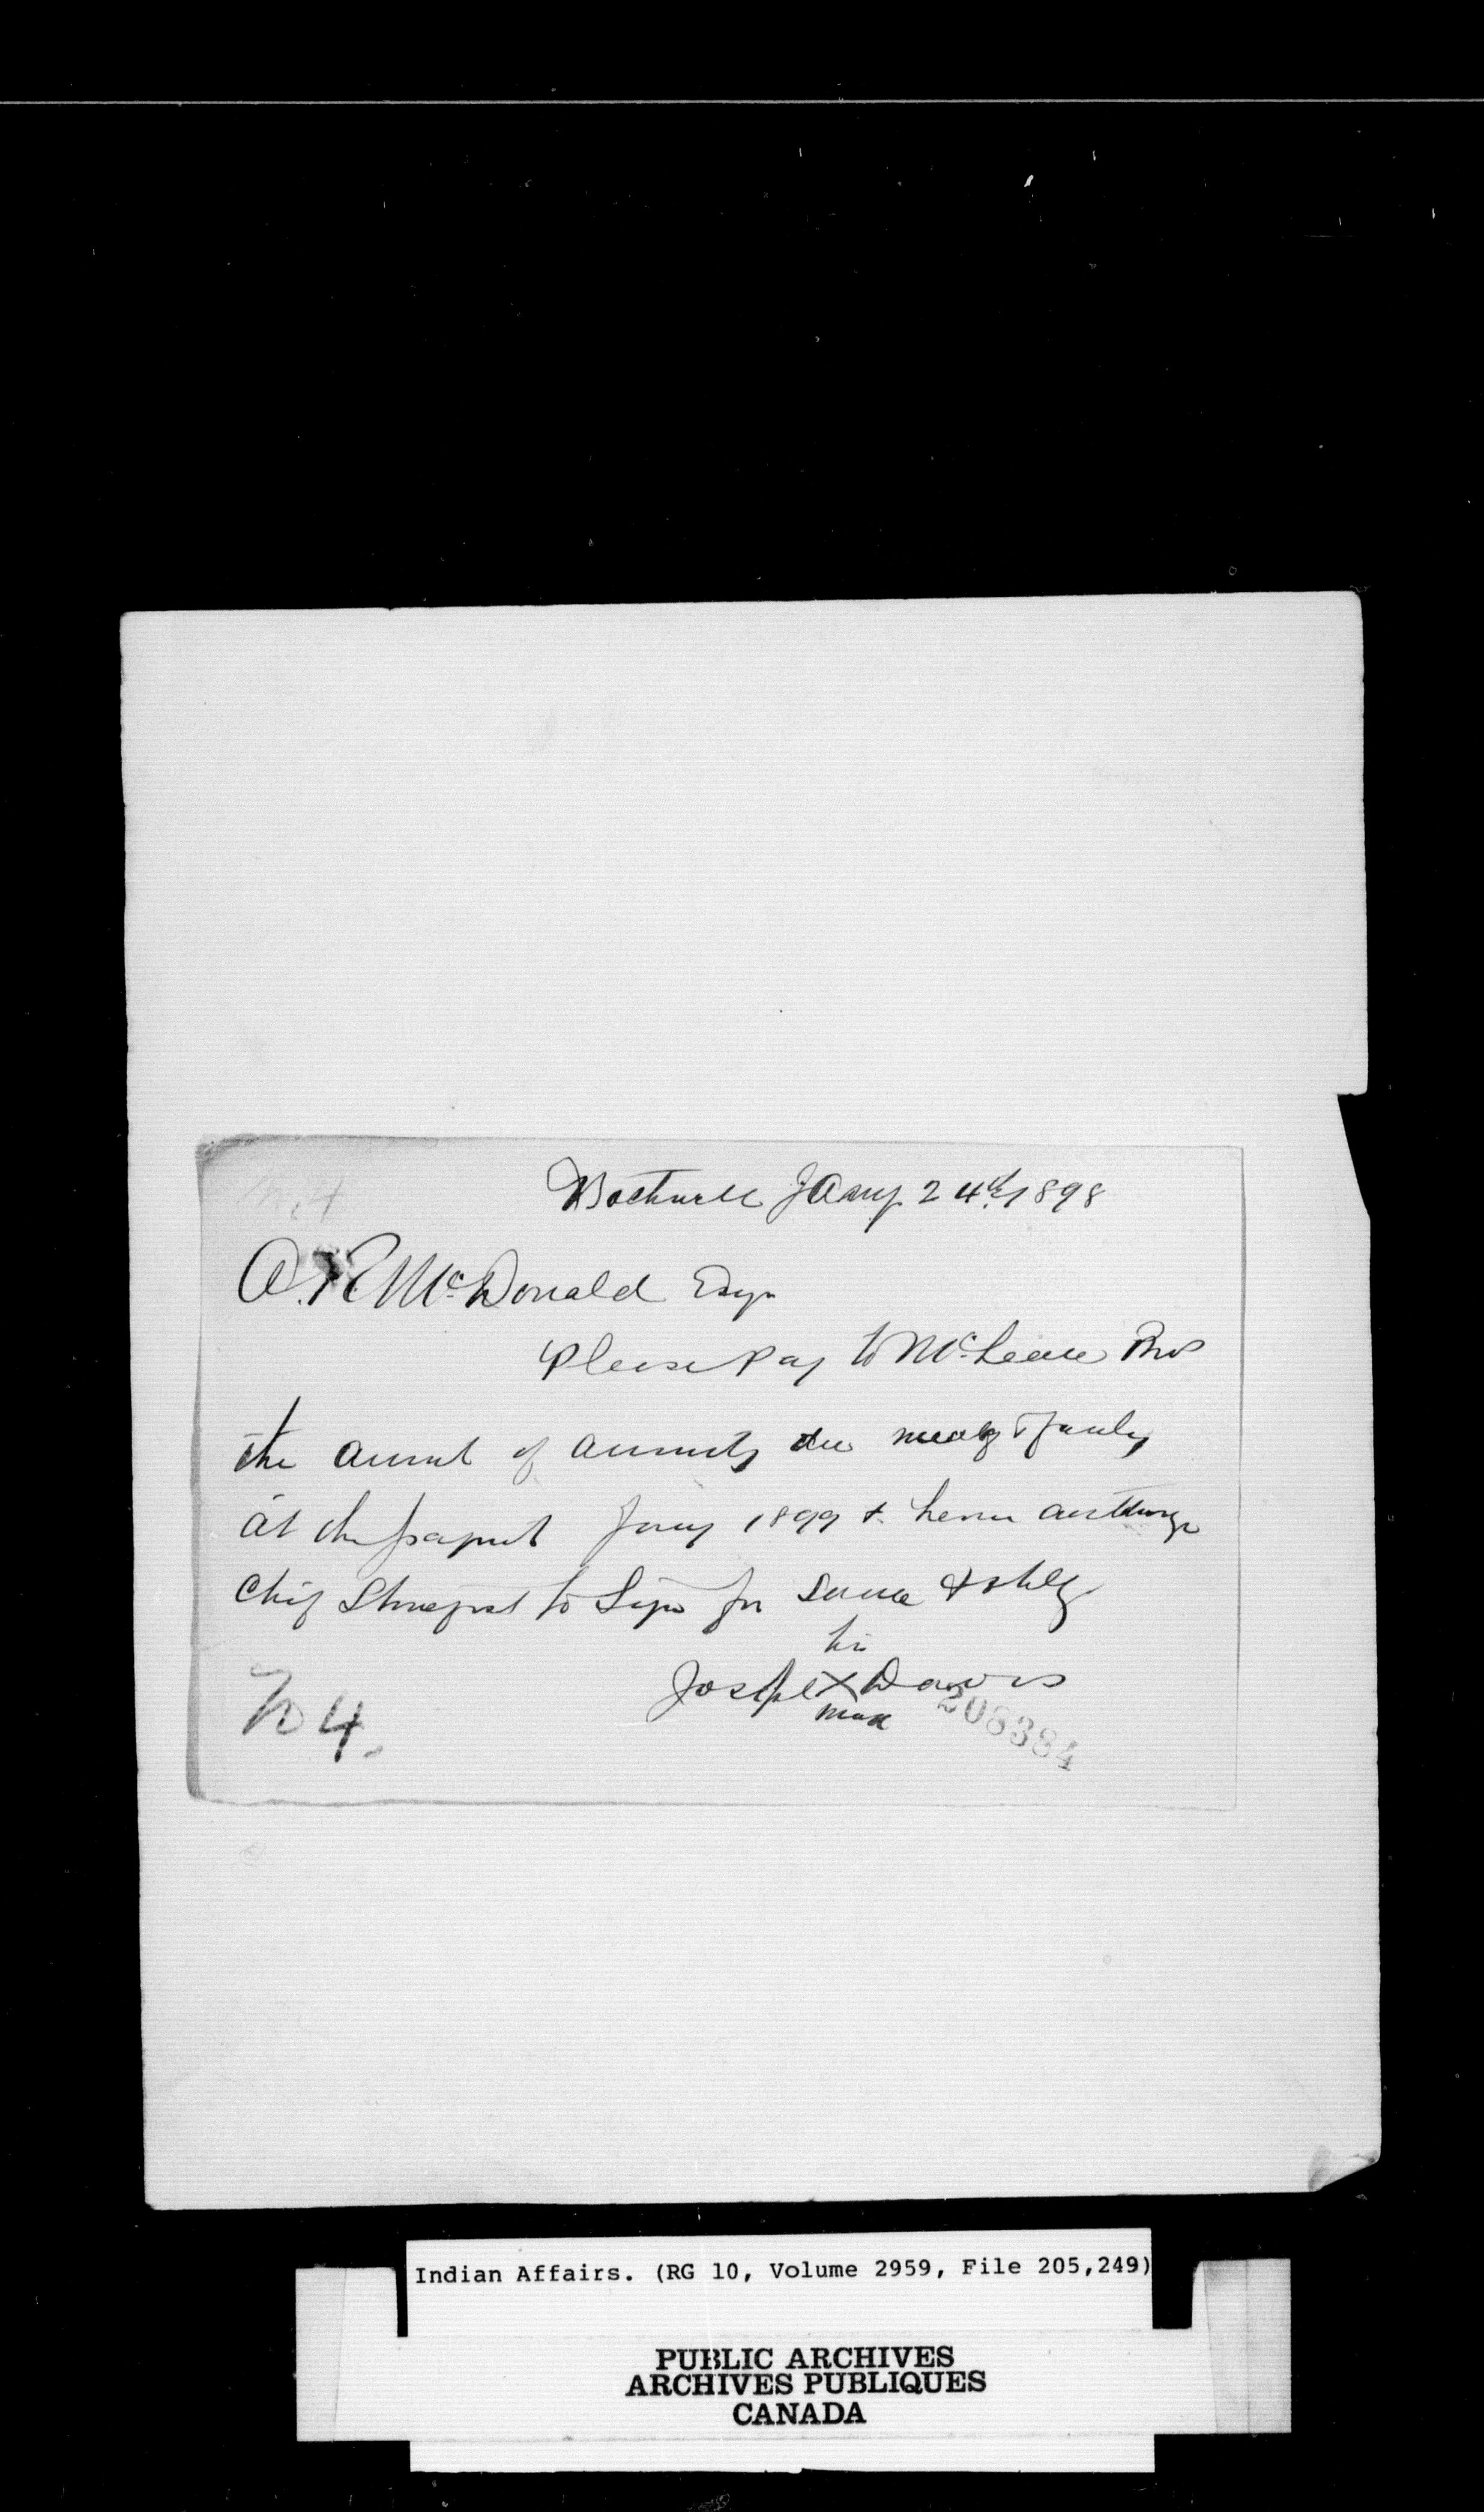 Bothwell Jany 24th 1898
A. R. McDonald Esqr
Please Pay to McLean Bros
the amnt of annuity due & family
at the paymt Jany 1899 &
Chief to Sign for same & oblg
his
Joseph X Davis
mark
208384
No 4.
Indian Affairs. (RG 10, Volume 2959, File 205,249)
PUBLIC ARCHIVES
ARCHIVES PUBLIQUES
CANADA